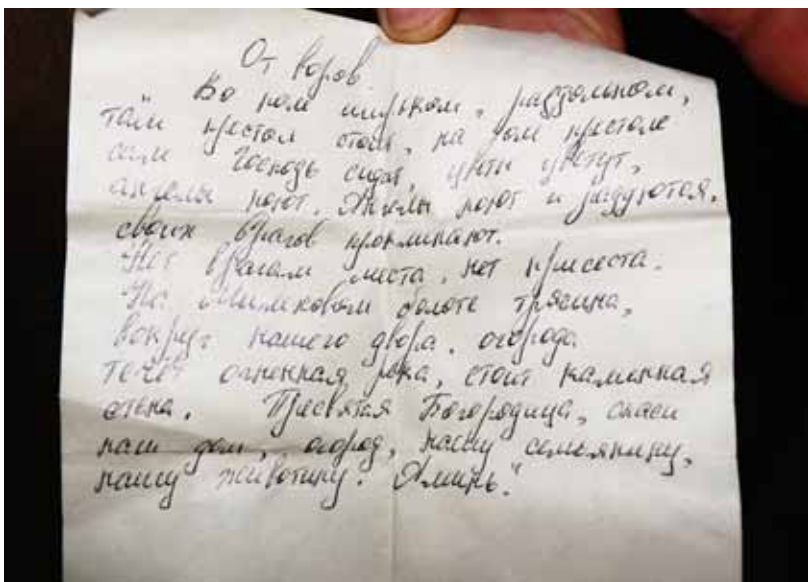 От воров.
Во поле широком, раздольном,
там престол стоит, на том престоле
сам Господь сидит, цветы цветут,
ангелы поют. Ангелы поют и радуются,
своих врагов проклинают.
Нет врагам места, нет присеста.
На болоте трясина,
вокруг нашего двора, огорода
течёт огненная река, стоит каменная
стена. Пресвятая Богородица, спаси
наш дом, огород, нашу семьянину,
нашу животину. Аминь."